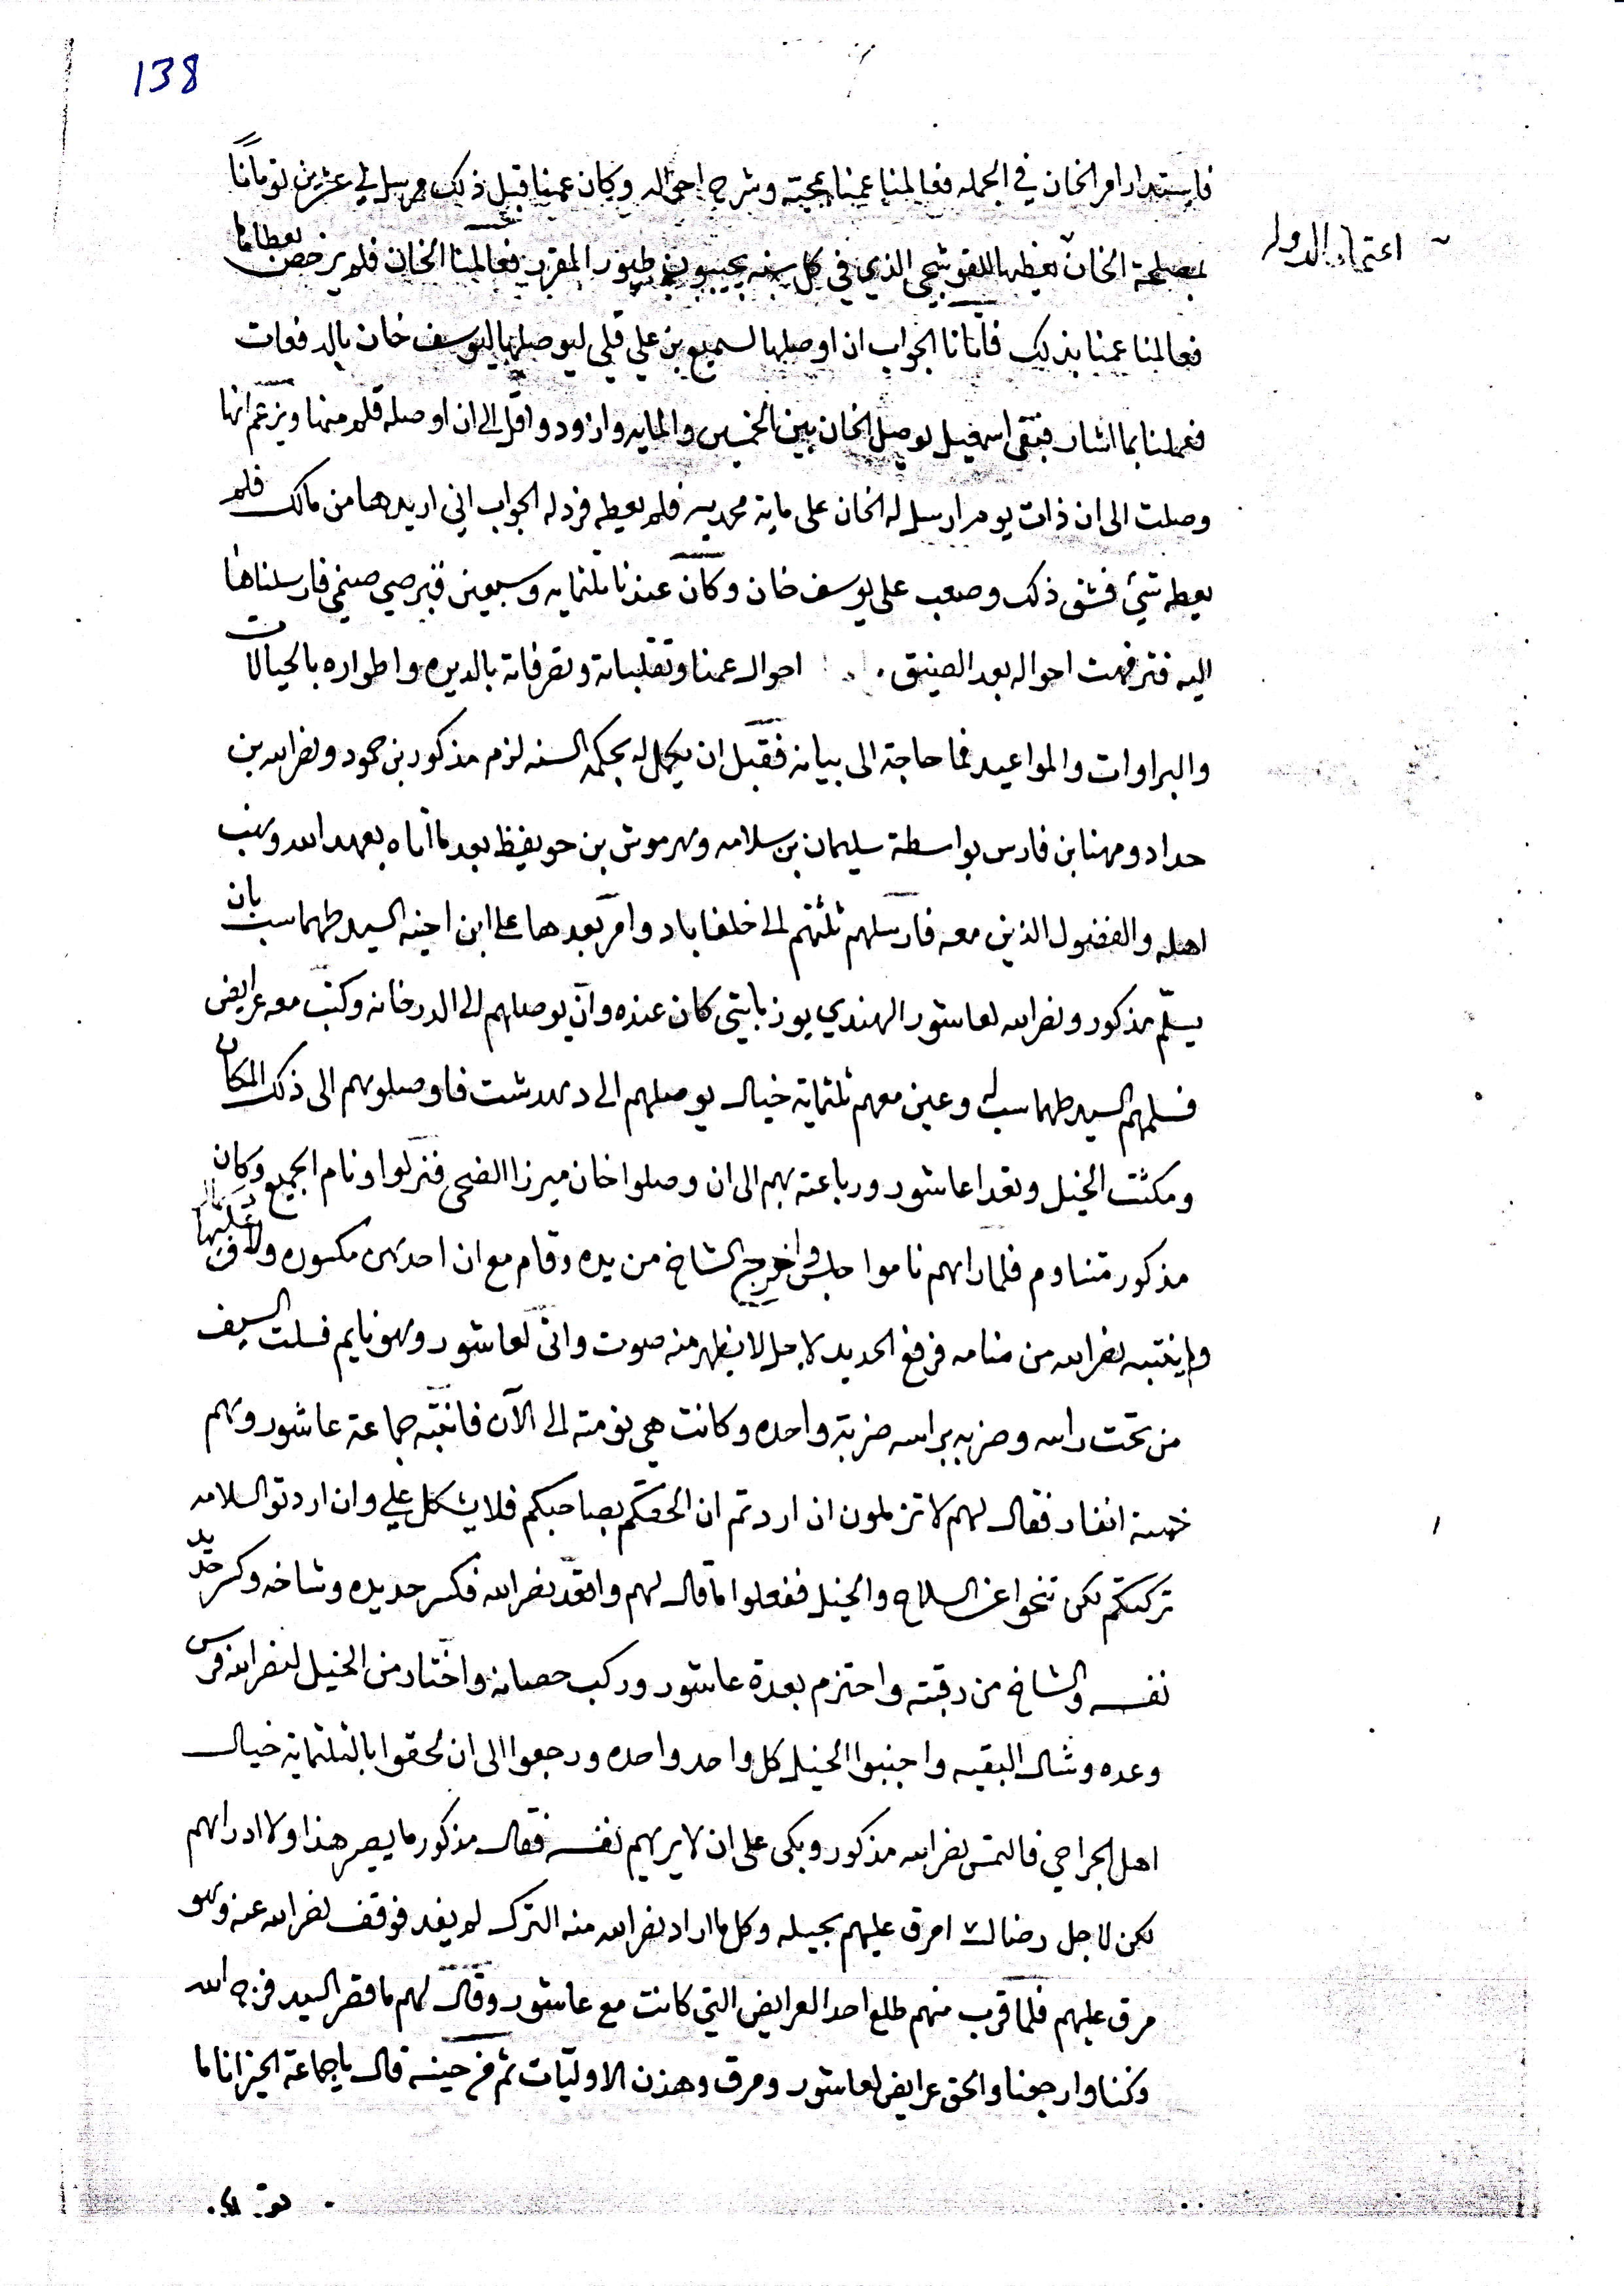 138
فاستدار امر الخان في الجمله فعالمنا عمنا بمجيته وشرح احواله وكان عمنا قبل ذلك مرسل لي عشرين تومانا
اعتماد الدوله
بمصلحة الخان نعطيها للقوشچي الذي في كل سنه يجيبون طيور المقرر فعالمنا الخان فلم يرخص بعطاها
فعالمنا عمنا بذلك فأتانا الجواب ان اوصلها لسميع بن علي قلي ليوصلها ليوسف خان بالدفعات
فعملنا بما اشار فبقى اسمعيل يوصل الخان بين الخمسين والمايه وازود واقل الى ان اوصله قلم منها ويزعم انها
وصلت الى ان ذات يوم ارسل له الخان على ماية محمديه فلم يعطه فرد له الجواب اني اريدها من مالك فلم
يعطه شيء فشق ذلك وصعب على يوسف خان وكان عندنا ثلثمايه وسبعين قبرصي صيغي فارسلناها
اليه فترفهت احواله بعد الضيق احوال عمنا وتقلباته وتصرفاته بالديره واطواره بالحيالات
والبراوات والمواعيد فما حاجة الى بيانه فقبل ان يكمل له بحكمه السنه لزم مذكور بن حمود ونصرالله بن
حداد ومهنا بن فارس بواسطة سليمان بن سلامه وهرموش بن حويفظ بعد ما اتاه بعهد الله ونهب
اهله والفضول الذين معه فارسلهم ثلثتهم الى خلفاباد وامر بعدها على ابن اخيه السيد طهماسب بان
يسلم مذكور ونصرالله لعاشور الهندي يوزباشي كان عنده وان يوصلهم الى الدرخانه وكتب معه عرايض
فسلمهم السيد طهماسب له وعين معهم ثلثماية خيال يوصلهم الى دهدشت فاوصلوهم الى ذلك المكان
ومكثت الخيل وتعدا عاشور ورباعته بهم الى ان وصلوا خان ميرزا الضحى فنزلوا ونام الجميع وكان
مذكور متناوم فلما راهم ناموا جلس واخرج الشاخ من يده وقام مع ان احديهن مكسوره
ولم ينتبه نصرالله من منامه فرفع الحديد لاجل لا يظهر منه صوت واتى لعاشور وهو نايم فسلت السيف
من تحت راسه وضربه براسه ضربة واحده وكانت هي نومته الى الآن فانتبه جماعة عاشور وهم
خمسة انفار فقال لهم لا تزلمون ان اردتم ان الحقكم بصاحبكم فلا يشكل علي وان اردتو السلامه
تركتكم لكن تنحوا عن السلاح والخيل ففعلوا ما قال لهم واقعد نصرالله فكسر حديده وشاخه وكسر حديد
نفسه والشاخ من رقبته واحتزم بعدة عاشور وركب حصانه واختار من الخيل لنصرالله فرس
وعده وشال البقيه واجنبوا الخيل كل واحد واحده ورجعوا الى ان لحقوا بالثلثماية خيال
اهل الجراحي فالتمس نصرالله مذكور وبكى على ان لا يريهم نفسه فقال مذكور ما يصير هذا ولا ادراهم
لكن لاجل رضاك امرق عليهم بحيله وكل ما اراد نصرالله منه الترك لم يفد فوقف نصرالله عنه وهو
مرق عليهم فلما قرب منهم طلع احد العرايض التي كانت مع عاشور وقال لهم ما قصر السيد فرج الله
وكنا وارجعنا والحق عرايض لعاشور ومرق وهذن الاوليات ثم صرخ حينه قال يا جماعة الخير انا ما